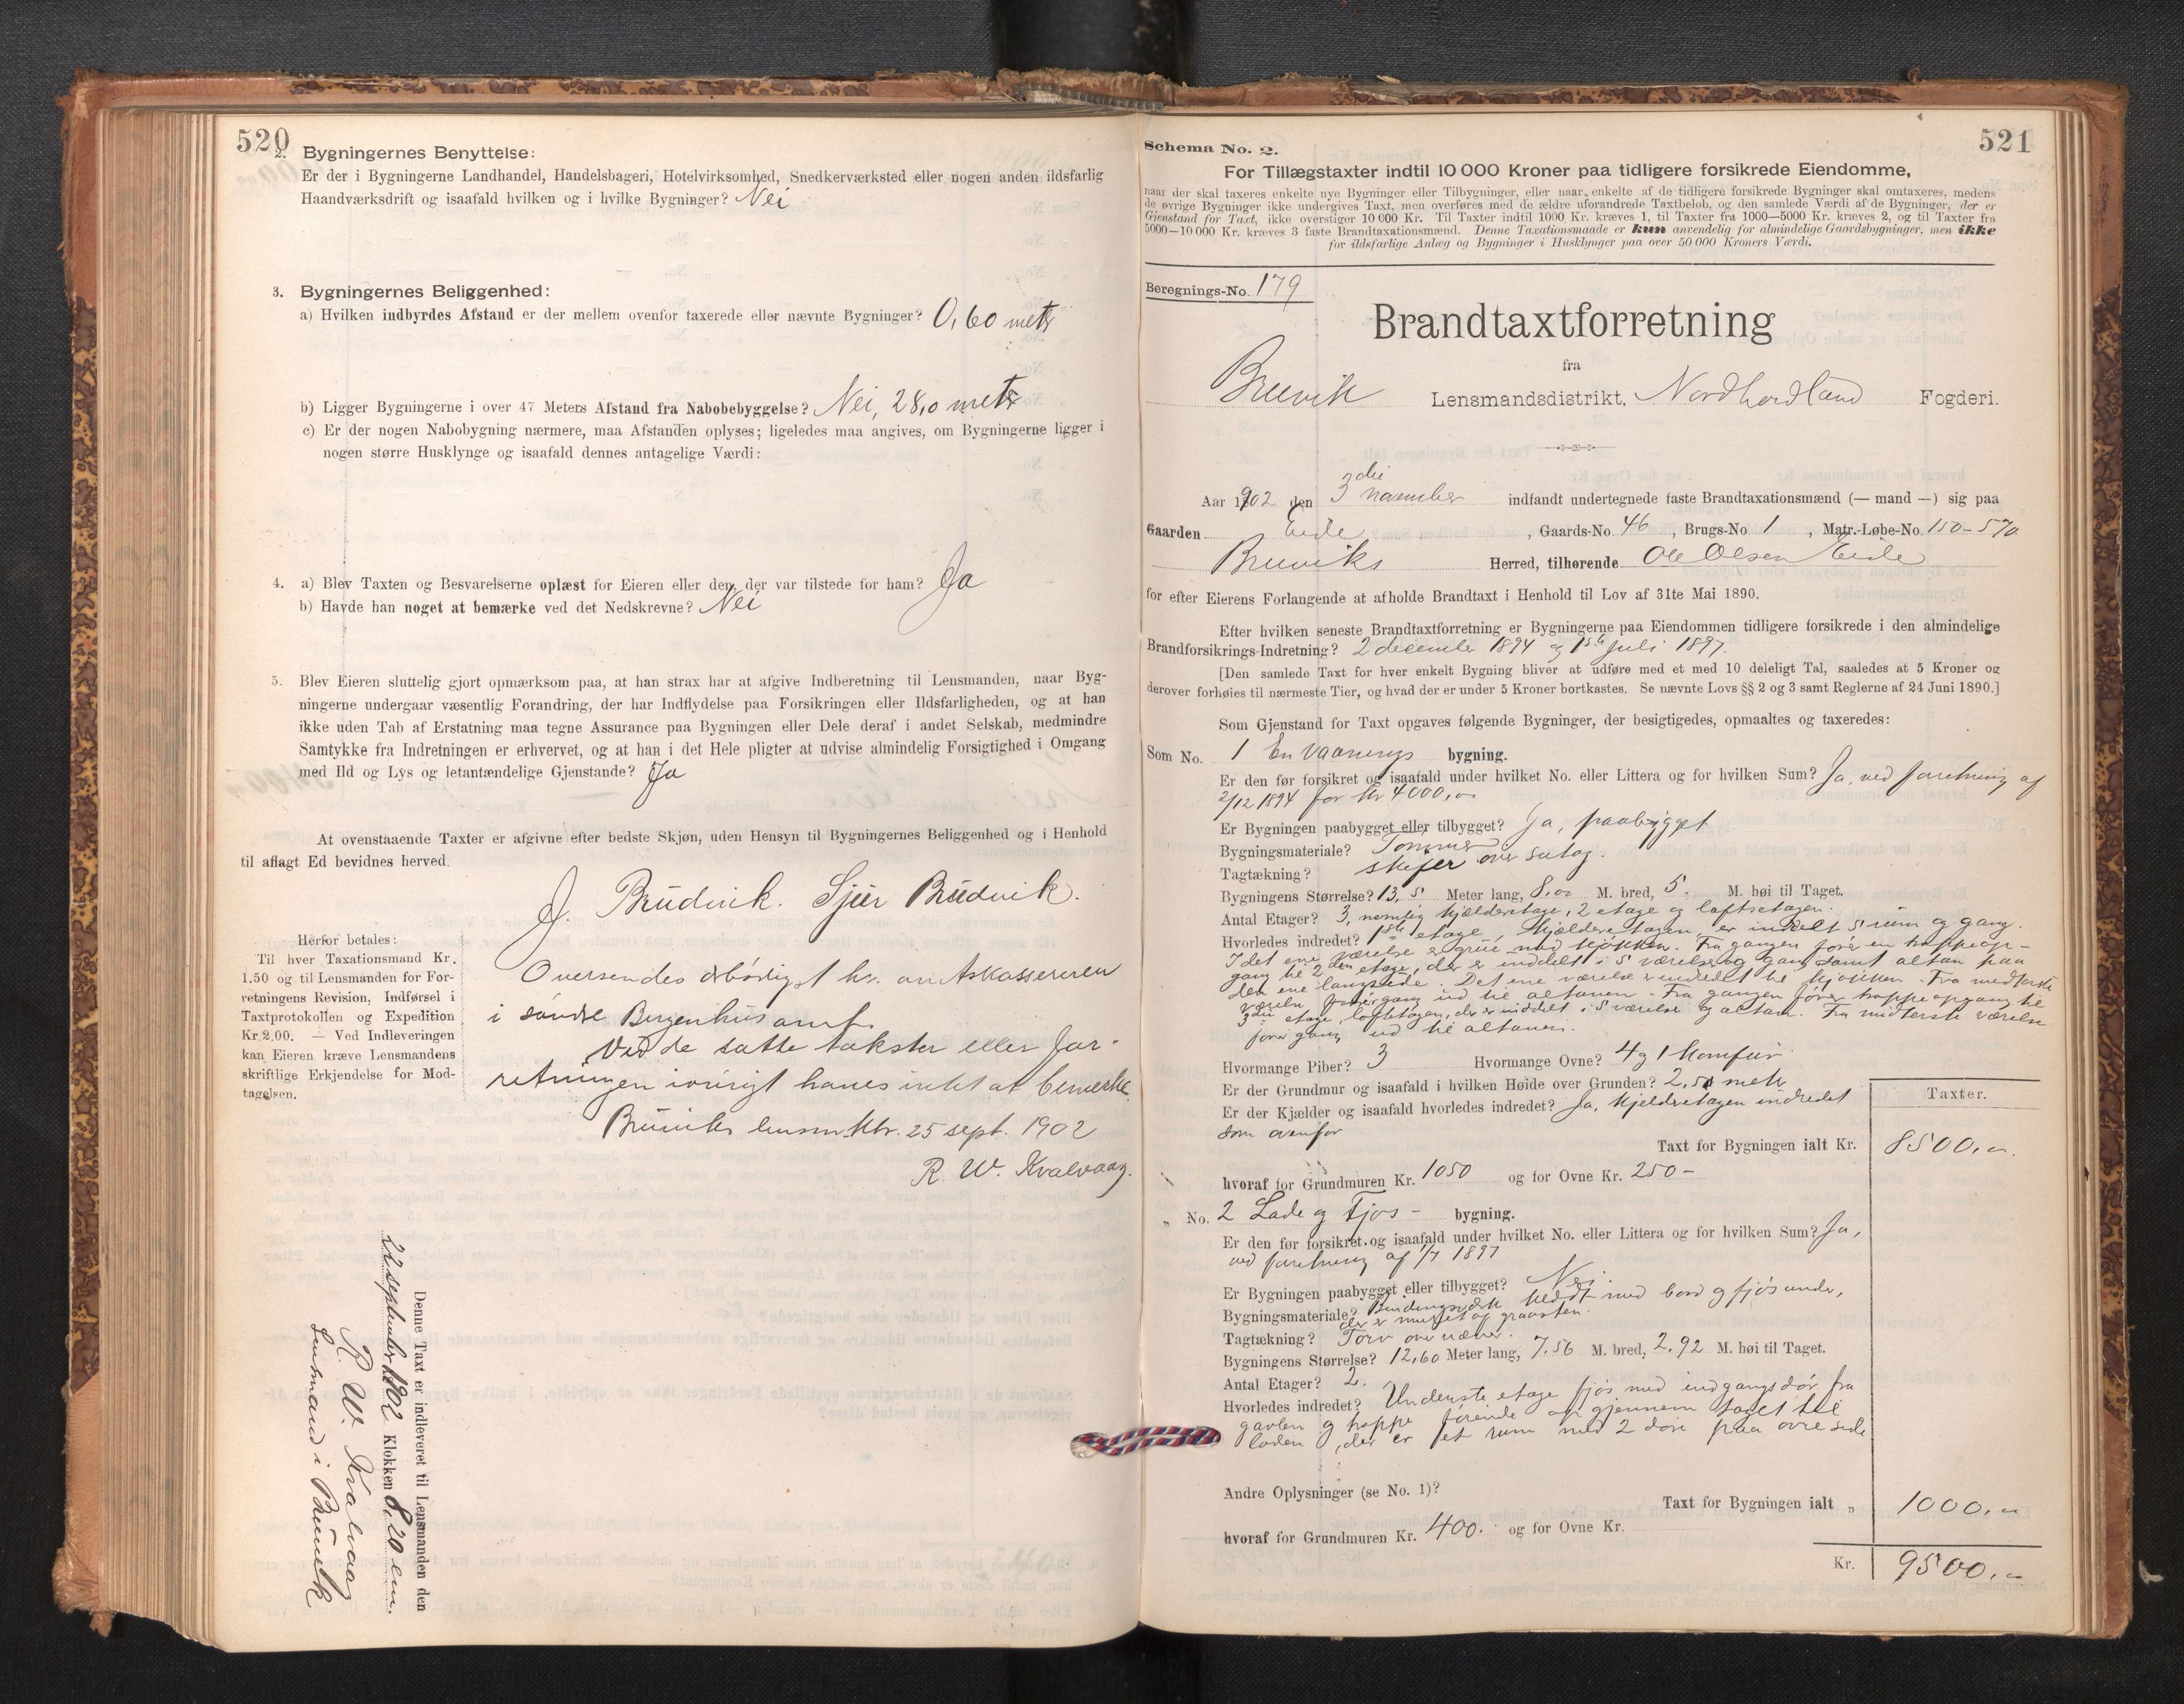 520
2. Bygningernes Benyttelse:
Er der i Bygningerne Landhandel, Handelsbageri, Hotelvirksomhed, Snedkerværksted eller nogen anden ildsfarlig
Haandværksdrift og isaafald hvilken og i hvilke Bygninger? Nei
3. Bygningernes Beliggenhed:
a) Hvilken indbyrdes Afstand er der mellem ovenfor taxerede eller nævnte Bygninger? 0,60 metr
b) Ligger Bygningerne i over 47 Meters Afstand fra Nabobebyggelse? Nei, 28,0 metr
c) Er der nogen Nabobygning nærmere, maa Afstanden oplyses; ligeledes maa angives, om Bygningerne ligger i
nogen større Husklynge og isaafald dennes antagelige Værdi:
4. a) Blev Taxten og Besvarelserne oplæst for Eieren eller den, der var tilstede for ham? Ja
b) Havde han noget at bemærke ved det Nedskrevne? Nei
5. Blev Eieren sluttelig gjort opmærksom paa, at han strax har at afgive Indberetning til Lensmanden, naar Byg-
ningerne undergaar væsentlig Forandring, der har Indflydelse paa Forsikringen eller Ildsfarligheden, og at han
ikke uden Tab af Erstatning maa tegne Assurance paa Bygningen eller Dele deraf i andet Selskab, medmindre
Samtykke fra Indretningen er erhvervet, og at han i det Hele pligter at udvise almindelig Forsigtighed i Omgang
med Ild og Lys og letantændelige Gjenstande? Ja
At ovenstaaende Taxter er afgivne efter bedste Skjøn, uden Hensyn til Bygningernes Beliggenhed og i Henhold
til aflagt Ed bevidnes herved.
J. Brudvik. Sjur Brudvik.
Herfor betales:
Til hver Taxationsmand Kr.
1.50 og til Lensmanden for For-
retningens Revision, Indførsel i
Taxtprotokollen og Expedition
Kr. 2,00. — Ved Indleveringen
kan Eieren kræve Lensmandens
skriftlige Erkjendelse for Mod-
tagelsen.
Oversendes ærbødigst hr.
i søndre Bergenhus amt.
Ved de satte takster eller for-
retningen iøvrigt haves intet at bemerke
Bruviks lensm.ktr. 25 sept. 1902
R. W. Kvalvaag.
Denne Taxt er indleveret til Lensmanden den
22 september 1902 Klokken 8,20 em.
R. W. Kvalvaag
Lensmand i Bruvik
521
Schema No. 2.
For Tillægstaxter indtil 10 000 Kroner paa tidligere forsikrede Eiendomme,
naar der skal taxeres enkelte nye Bygninger eller Tilbygninger, eller naar enkelte af de tidligere forsikrede Bygninger skal omtaxeres, medens
de øvrige Bygninger ikke undergives Taxt, men overføres med de ældre uforandrede Taxtbeløb, og den samlede Værdi af de Bygninger, der er
Gjenstand for Taxt, ikke overstiger 10 000 Kr. Til Taxter indtil 1000 Kr. kræves 1, til Taxter fra 1000—5000 Kr. kræves 2, og til Taxter fra
5000—10 000 Kr. kræves 3 faste Brandtaxationsmænd. Denne Taxationsmaade er kun anvendelig for almindelige Gaardsbygninger, men ikke
for ildsfarlige Anlæg og Bygninger i Husklynger paa over 50 000 Kroners Værdi.
Beregnings-No. 179
Brandtaxtforretning
fra
Bruvik Lensmandsdistrikt, Nordhordland Fogderi.
Aar 1902 den 3die november indfandt undertegnede faste Brandtaxationsmænd (— mand —) sig paa
Gaarden Eide, Gaards-No. 46, Brugs-No 1, Matr.-Løbe-No. 150-570
Bruviks Herred, tilhørende Ole Olsen Eide
for efter Eierens Forlangende at afholde Brandtaxt i Henhold til Lov af 31te Mai 1890.
Efter hvilken seneste Brandtaxtforretning er Bygningerne paa Eiendommen tidligere forsikrede i den almindelige
Brandforsikrings-Indretning? 2 december 1894 og 1ste juli 1897.
[Den samlede Taxt for hver enkelt Bygning bliver at udføre med et med 10 deleligt Tal, saaledes at 5 Kroner og
derover forhøies til nærmeste Tier, og hvad der er under 5 Kroner bortkastes. Se nævnte Lovs §§ 2 og 3 samt Reglerne af 24 Juni 1890.]
Som Gjenstand for Taxt opgaves følgende Bygninger, der besigtigedes, opmaaltes og taxeredes:
Som No. 1 En Vaanings bygning.
Er den før forsikret og isaafald under hvilket No. eller Littera og for hvilken Sum? Ja, ved forretning af
2/12 1894 for kr 4000,00
Er Bygningen paabygget eller tilbygget? Ja, paabygget
Bygningsmateriale? Tømmer
Tagtækning? skifer over sutag.
Bygningens Størrelse? 13,5 Meter lang, 8,00 M. bred, 5. M. høi til Taget.
Antal Etager? 3, nemlig kjælderetage, 2 etage og loftsetagen.
Hvorledes indredet? 1ste etage, kjælderetagen, er inddelt 5 rum og gang.
I det ene værelse er grue med kjøkken. Fra gangen fører en trappeop-
gang til 2den etage, der er inddelt i 5 værelser og gang samt altan paa
den ene langside. Det ene værelse er indredet til kjøkken. Fra midterste
værelse fører gang ud til altanen. Fra gangen fører trappeopgang til
3die etage, loftetagen, der er inddelt i 5 værelser og altan. Fra midterste værelse
fører gang ud til altanen.
Hvormange Piber? 3 Hvormange Ovne? 4 og 1 komfur
Er der Grundmur og isaafald i hvilken Høide over Grunden? 2,50 metr
Er der Kjælder og isaafald hvorledes indredet? Ja, kjelderetagen indredet
som ovenfor
Taxter.
Taxt for Bygningen ialt Kr. 8500,00
hvoraf for Grundmuren Kr. 1050 og for Ovne Kr. 250-
„ No. 2 Lade og Fjøs - bygning.
Er den før forsikret og isaafald under hvilket No. eller Littera og for hvilken Sum? Ja,
ved forretning af 1/7 1897
Er Bygningen paabygget eller tilbygget? Nei.
Bygningsmateriale? Bindingsverk klædt med bord og fjøs under,
der er muret af graasten.
Tagtækning? Torv over næver.
Bygningens Størrelse? 12,60 Meter lang, 7.56 M. bred, 2,92 M. høi til Taget.
Antal Etager? 2.
Hvorledes indredet? Underste etage fjøs med indgangsdør fra
gavlen og trappe førende op gjennem taget til
laden, der er et rum med 2 døre paa øvre side
Andre Oplysninger (se No. 1)?
Taxt for Bygningen ialt „ 1000,00
hvoraf for Grundmuren Kr. 400. og for Ovne Kr.
Kr. 9500,00